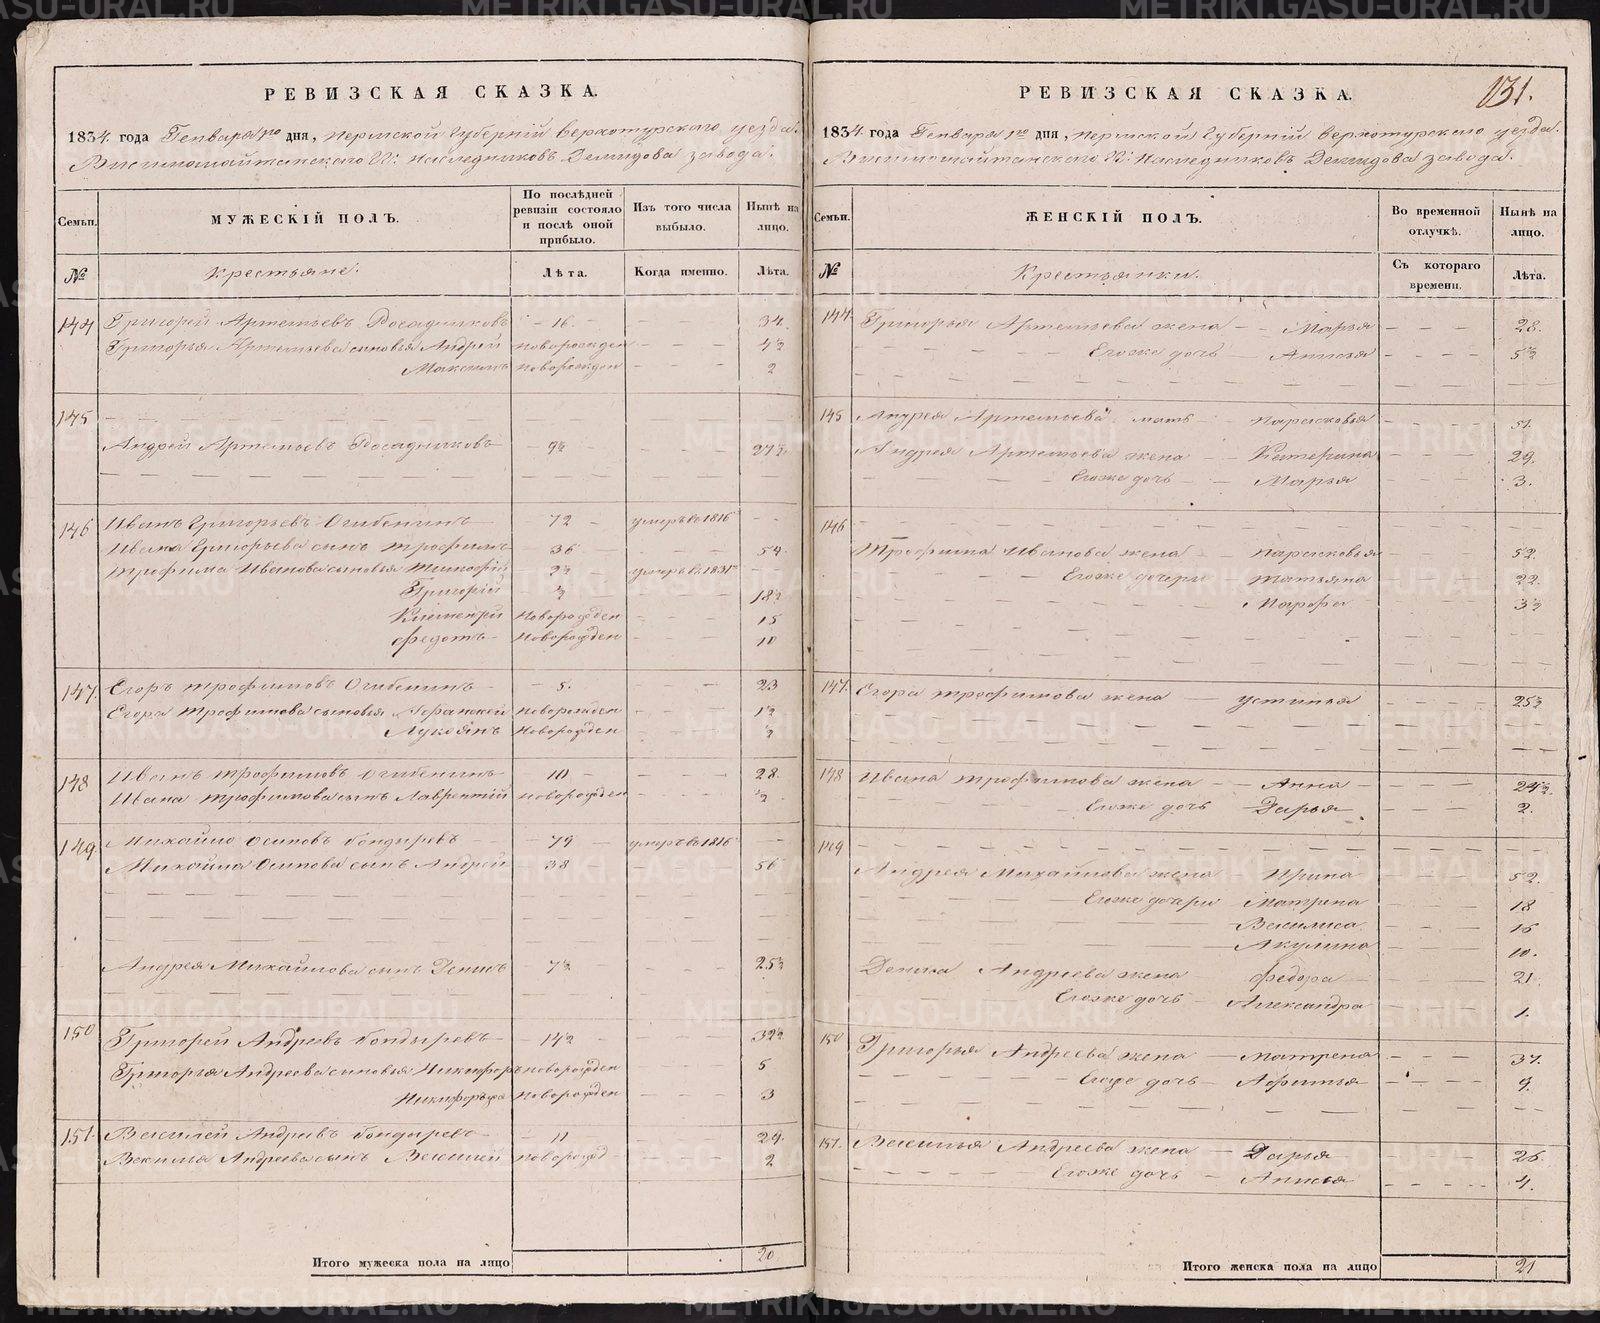 РЕВИЗСКАЯ СКАЗКА.
1834. года Генваря 1го дня, Пермской Губернiи Верхотурскаго уезда.
Висимошайтанскаго П: Наследниковъ Демидова завода.
Семьи.
МУЖЕСКIЙ ПОЛЪ.
По послѣдней ревизiи состояло и послѣ оной прибыло.
Изъ того числа выбыло.
Нынѣ на лицо.
№
Крестьяне.
Лѣта.
Когда именно.
Лѣта.
144 Григорей Артемьевъ Посадниковъ - 16. - 34.
Григорья Артемьева сыновья Андрей новорожден - - - 4½
Максимъ новорожден - - - 2
145
Андрей Артемьевъ Посадниковъ - 9½ - - - 27½
146 Иванъ Григорьевъ Огибенинъ - 72 - умеръ во 1816 - -
Ивана Григорьева сынъ Трофимъ - 36 - - - 54.
Трофима Иванова сыновья Тимофей - 2½ умеръ въ 1831 - -
Григорiй - ½ 18½
Климентiй Новорожден - - - 15
Федотъ - Новорожден - - - 10
147. Егоръ Трофимовъ Огибенинъ - 5. - - - 23
Егора Трофимова сыновья новорожден - - - 1½
Лукоянъ Новорожден - - - ½
148 Иванъ Трофимовъ Огибенинъ - 10 - - - 28.
Ивана Трофимова сынъ Лаврентiй новорожден - - - ½
149. Михайло Осиповъ Бондыревъ - 79 - умеръ во 1816 - -
Михайла Осипова сынъ Андрей - 38 - 56
Андрея Михайлова сынъ Денисъ - 7½ - - - 25½
150 Григорей Андреевъ Бондыревъ - 14½ - 32½
Григорья Андреева сыновья Никифоръ новорожден 5
новорожден - - - 3
151. Василей Андреевъ Бондыревъ - 11 - - - 29.
Василья Андреева сынъ Василей новорожд - - - 2
Итого мужеска пола на лицо 20
131.
РЕВИЗСКАЯ СКАЗКА.
1834. года Генваря 1го дня, Пермской Губернiи Верхотурскаго уезда.
Висимошайтанскаго П: Наследниковъ Демидова завода.
Семьи.
ЖЕНСКIЙ ПОЛЪ.
Во временной отлучкѣ.
Нынѣ на лицо.
№
Крестьянки.
Съ котораго времени.
Лѣта.
144. Григорья Артемьева жена - - Марья - - - 28.
Егоже дочь - Анисья - - - 5½
145 Андрея Артемьева мать - - Парасковья - - - 51.
Андрея Артемьева жена - - Катерина - - - 29.
Егоже дочь - - Марья - - - 3.
146
Трофима Иванова жена - - Парасковья - - - 52.
Егоже дочери Татьяна - - - 22.
Марфа 3½
147. Егора Трофимова жена - Устинья - - - 25½
148 Ивана Трофимова жена - Анна - - - 24½.
Егоже дочь - Дарья - - - 2.
149
Андрея Михайлова жена Ирина - - - 52.
Егоже дочери Матрена - - - 18
Василиса 16
Акулина - - - 10.
Дениса Андреева жена - Федора - - - 21
Егоже дочь - Александра - - - 1.
150 Григорья Андреева жена - Матрена - - - 37.
Егоже дочь - Афимья - - - 9.
151. Василья Андреева жена - Дарья - - - 26.
Егоже дочь - Анисья - - - 4.
Итого женска пола на лицо 21
METRIKI.GASO-URAL.RU